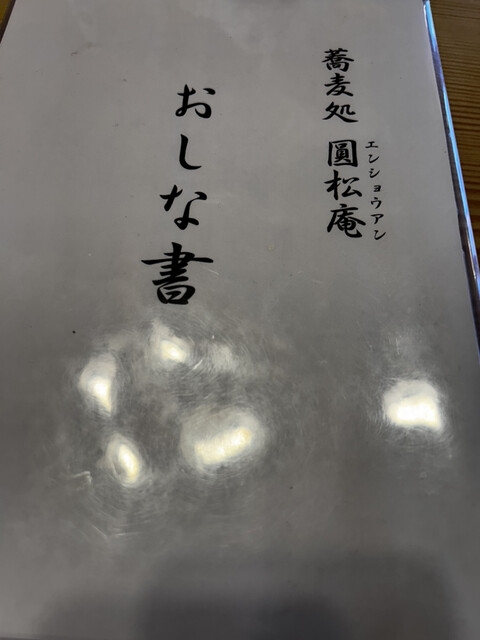 蕎麦処 圓松庵
エンショウアン
おしな書